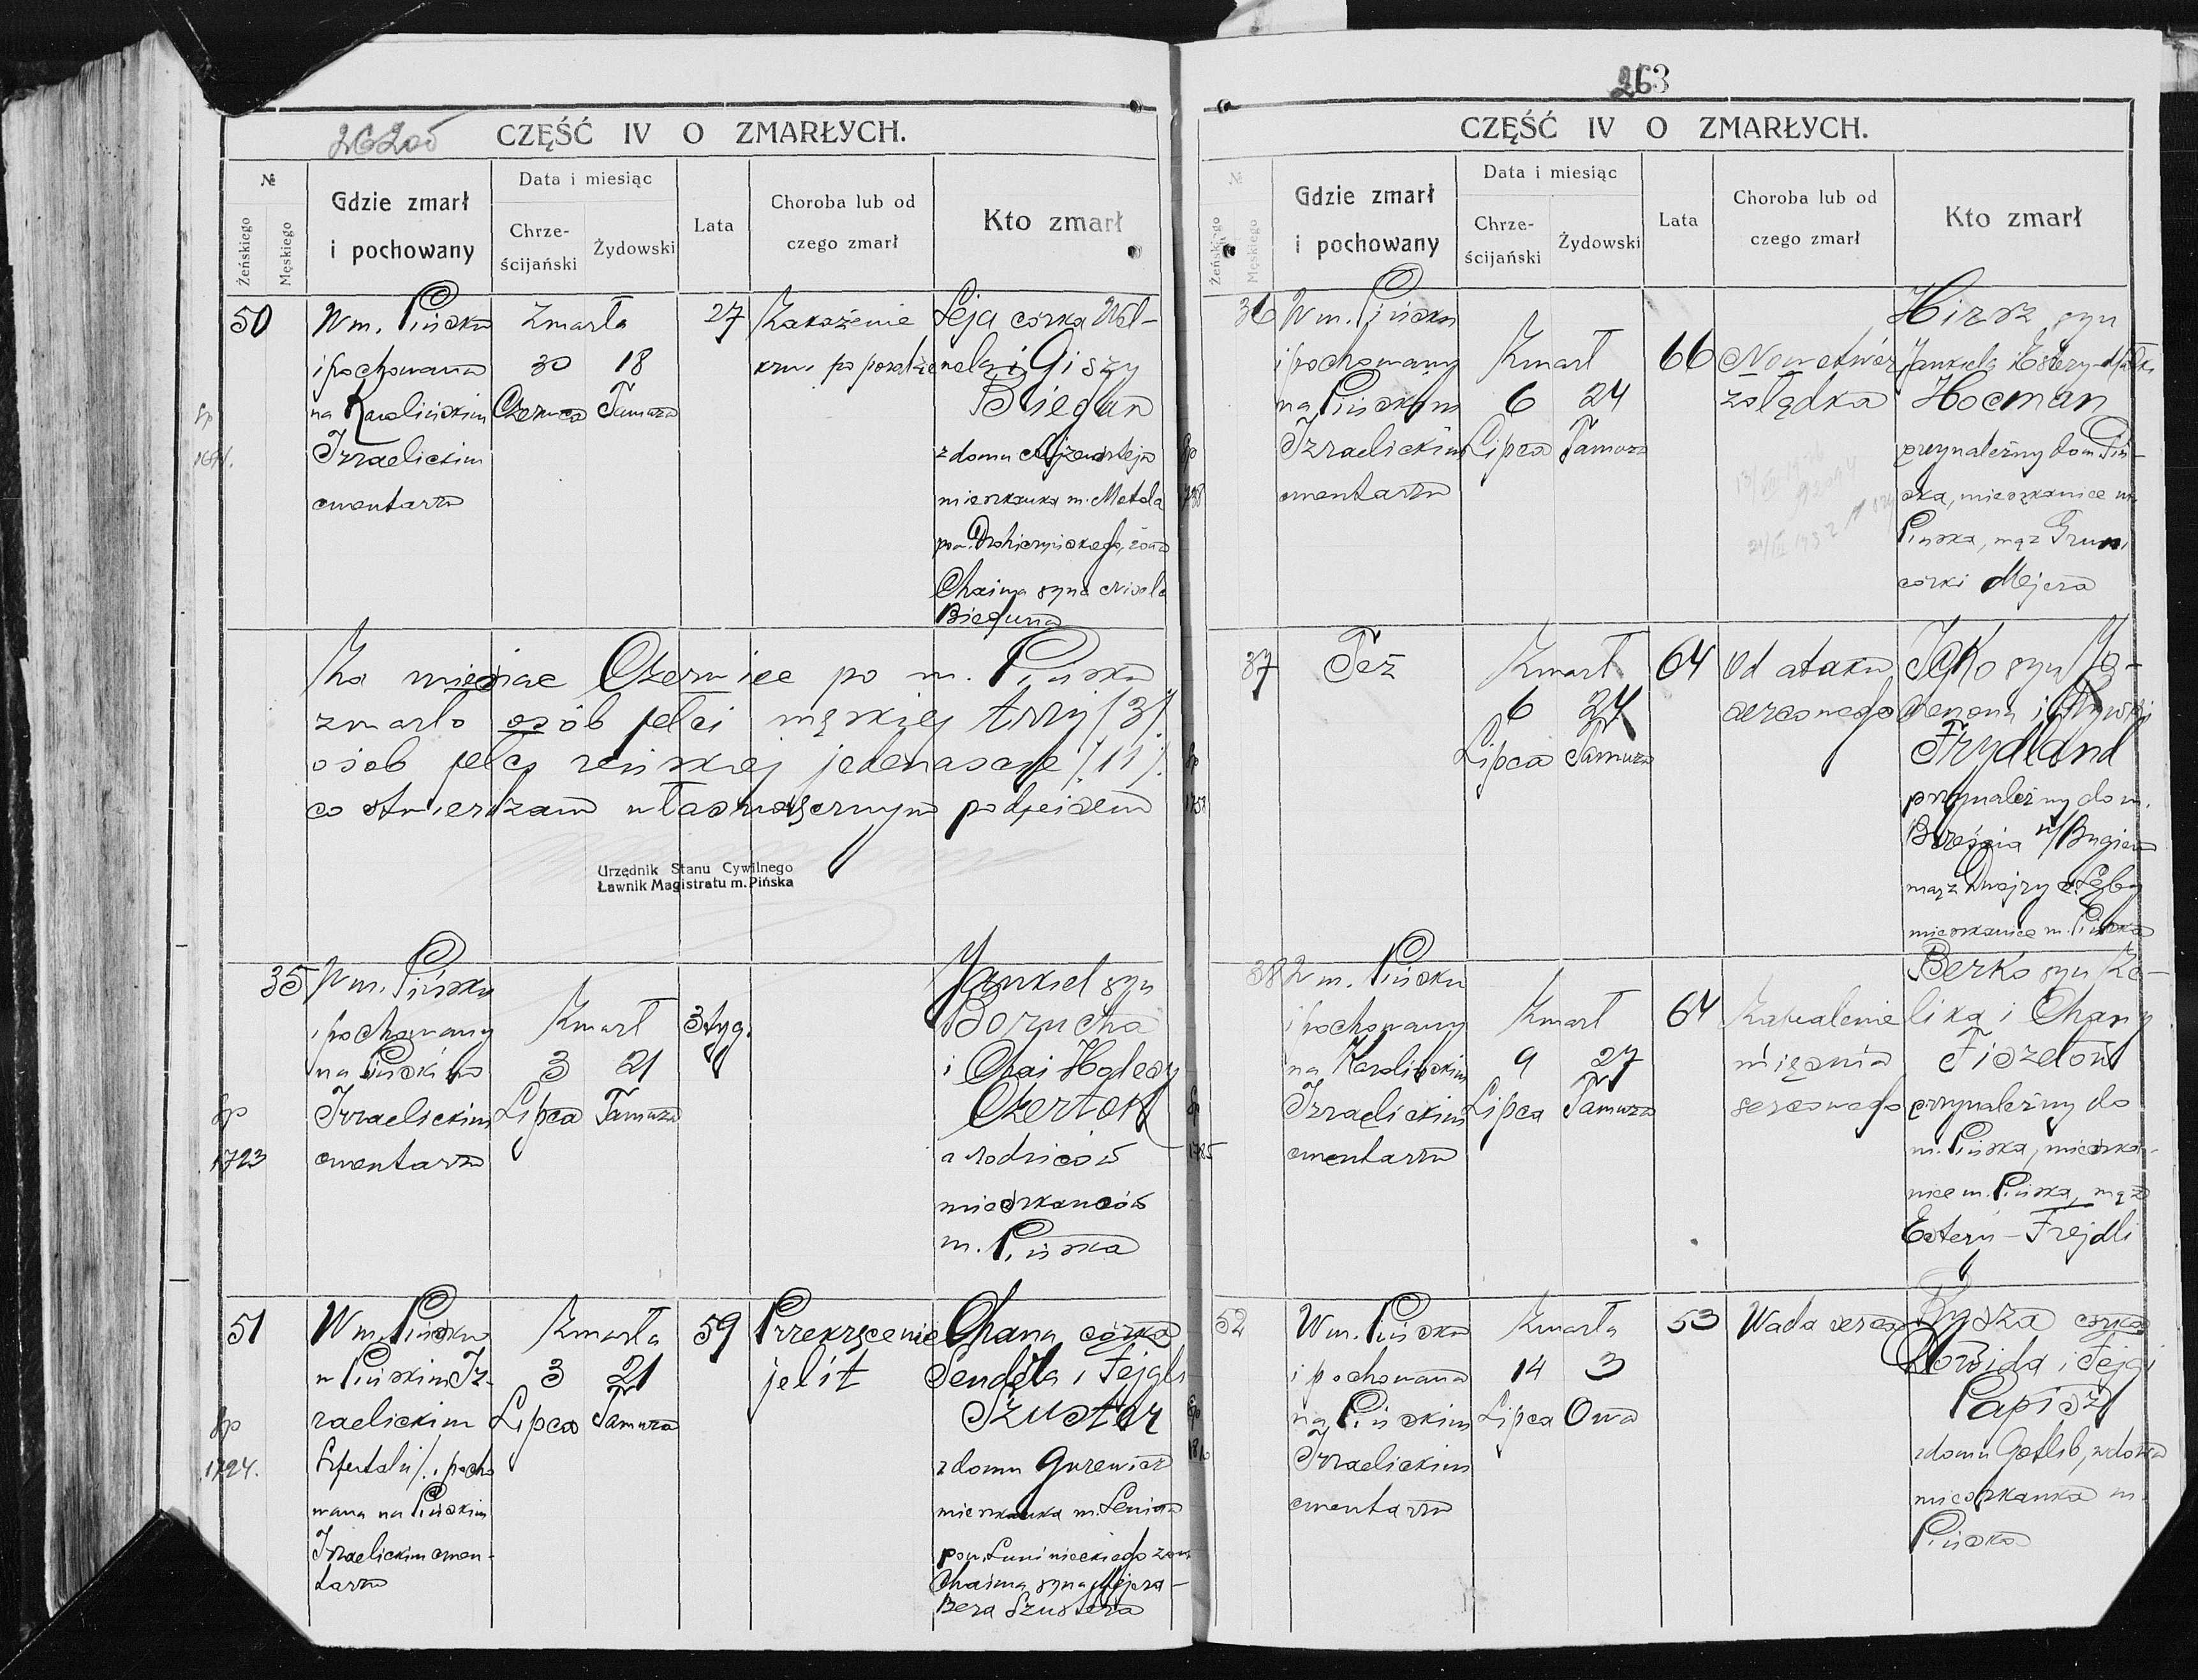 263
CZĘŚĆ IV O ZMARŁYCH.
№
Żeńskiego
Męskiego
Gdzie zmarł
i pochowany
Data i miesiąc
Chrze-
ścijański
Żydowski
Lata
Choroba lub od
czego zmarł
Kto zmarł
50
W m. Pińsku
i pochowana
na Karolińskim
Izraelickim
cmentarzu
Zmarła
30 18
Czerwca Tamuza
27
Zakażenie
krwi po porodzie
Leja córka Wol-
nela i Giszy
Biegun
z domu
mieszkanka m. Motola
pow. Drohiczyńskiego, żona
Chaima syna Nisela
Bieguna
Za miesiąc Czerwiec po m. Pińsku
zmarło osób płci męskiej trzy /3/
osób płci żeńskiej jedenaście /11/
co stwierdzam własnoręcznym podpisem
Urzędnik Stanu Cywilnego
Ławnik Magistratu m. Pińska
35
W m. Pińsku
i pochowany
na Pińskim
Izraelickim
cmentarzu
Zmarł
3 21
Lipca Tamuza
3 tyg.
Jankiel syn
Borucha
i Chai Hołedy
Czertok
a rodziców
mieszkańców
m. Pińska
1723
51
W m. Pińsku
w Pińskim Iz-
raelickim
Szpitalu/. i pocho
wana na Pińskim
Izraelickim cmen-
tarzu
Zmarła
3 21
Lipca Tamuza
59
Przekręcenie
jelit
Chana córka
Sendela i Fejgli
Szuster
z domu Gurewicz
mieszkanka m. Lenina
pow. Łuninieckiego żona
Chaima syna Mejera-
Bera Szustera
1724.
CZĘŚĆ IV O ZMARŁYCH.
№
Żeńskiego
Męskiego
Gdzie zmarł
i pochowany
Data i miesiąc
Chrze-
ścijański
Żydowski
Lata
Choroba lub od
czego zmarł
Kto zmarł
36
W m. Pińsku
i pochowany
na Pińskim
Izraelickim
cmentarzu
Zmarł
6 24
Lipca Tamuza
66
Nowotwór
żołądka
Hirsz syn
Jankiela i Estery-
Hocman
przynależny do m. Piń-
ska, mieszkaniec m.
Pińska, mąż Gruni
córki Mejera
37
Też
Zmarł
6 24
Lipca Tamuza
64
Od ataku
sercowego
Icko syn
i
Frydland
przynależny do m.
Brześcia n/Bugiem
mąż Dwejry
mieszkaniec m. Pińska
38
W m. Pińsku
i pochowany
na Karolińskim
Izraelickim
cmentarzu
Zmarł
9 27
Lipca Tamuza
64
Zapalenie
mięśnia
sercowego
Berko syn Ze-
lika i Chany
Fiszelow
przynależny do
m. Pińska, mieszka-
niec m. Pińska, mąż
Estery-Frejdli
52
W m. Pińsku
i pochowana
na Pińskim
Izraelickim
cmentarzu
Zmarła
14 3
Lipca Owa
53
Wada serca
Rysza córka
Dowida i Fejgi
Papisz
z domu Gotlib, wdowa
mieszkanka m.
Pińska